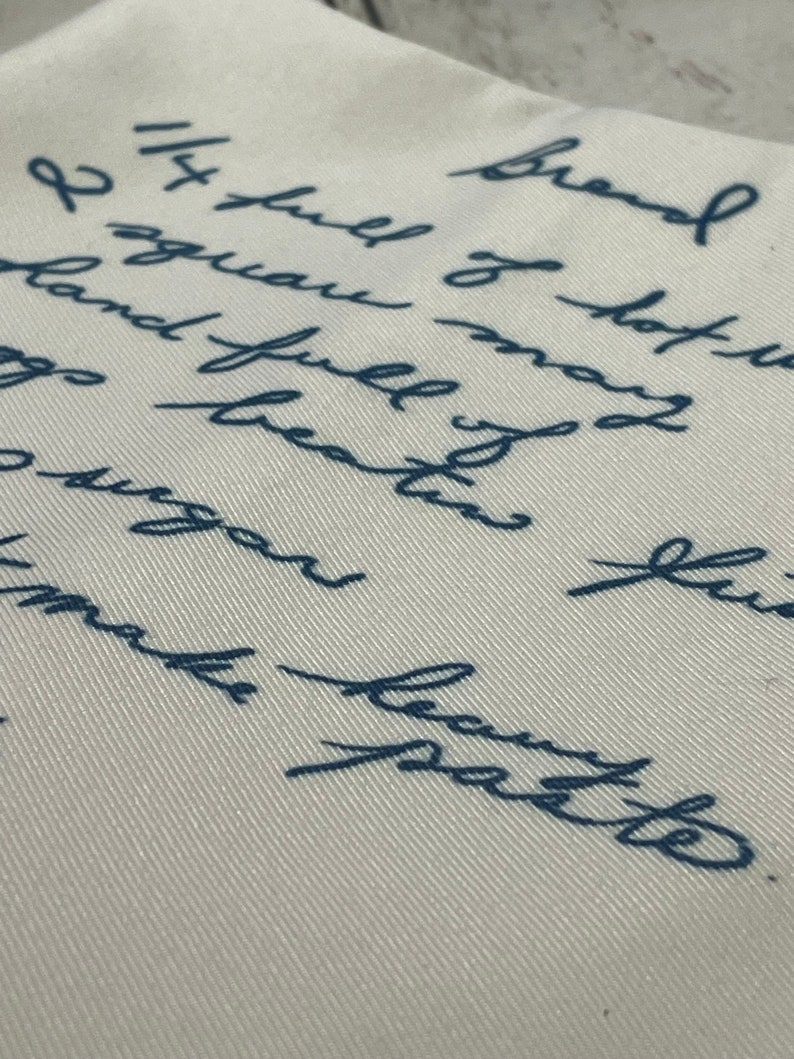 Bread
1/4 full of hot
2 square marg
hand full of
beaten
sugar
make heavy
paste.